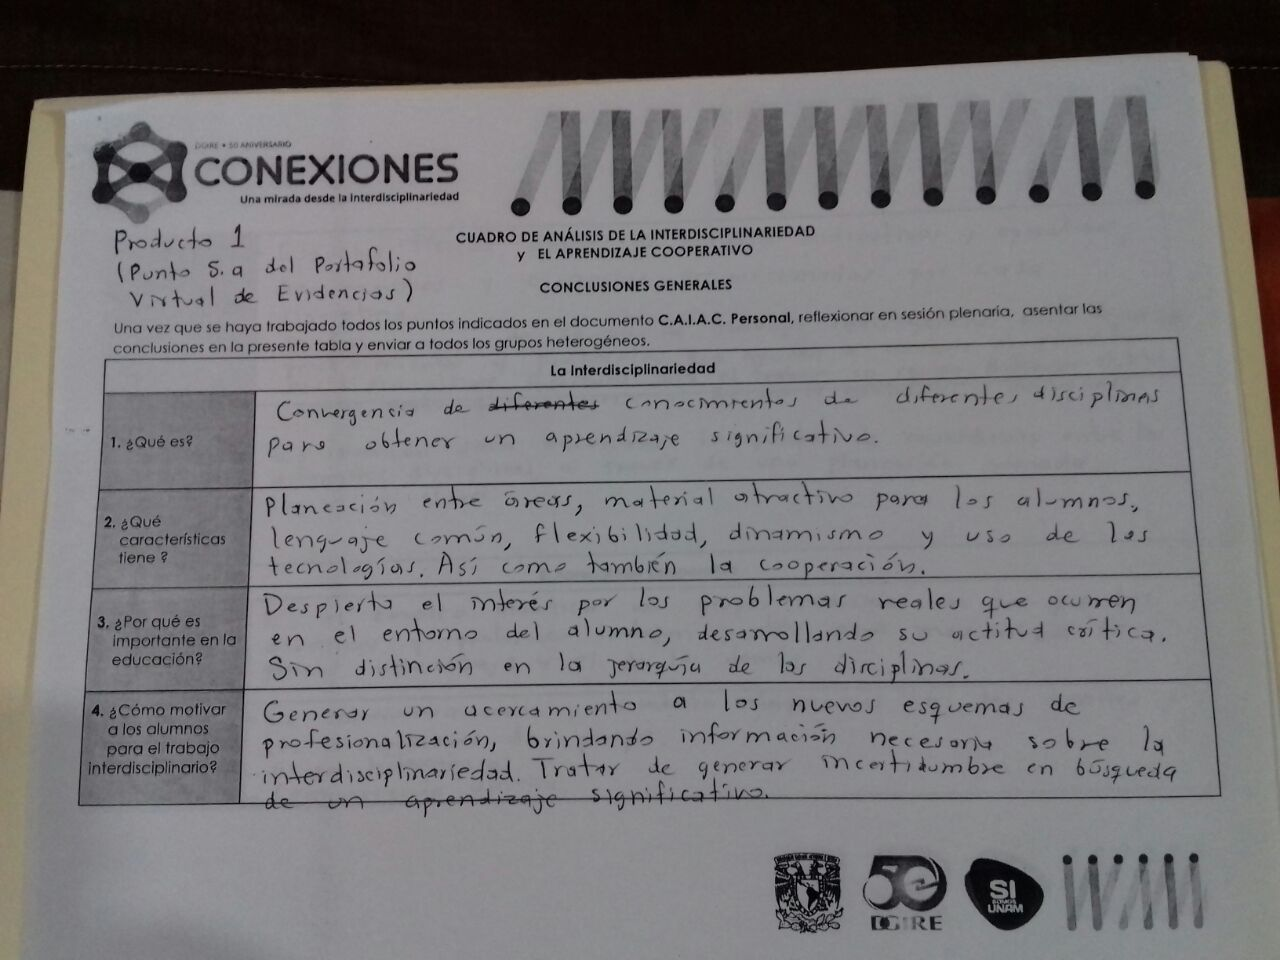 DGIRE • 50 ANIVERSARIO
CONEXIONES
Una mirada desde la interdisciplinariedad
Producto 1
(Punto 5.a del Portafolio
Virtual de Evidencias)
CUADRO DE ANÁLISIS DE LA INTERDISCIPLINARIEDAD
y EL APRENDIZAJE COOPERATIVO
CONCLUSIONES GENERALES
Una vez que se haya trabajado todos los puntos indicados en el documento C.A.I.A.C. Personal, reflexionar en sesión plenaria, asentar las
conclusiones en la presente tabla y enviar a todos los grupos heterogéneos.
La Interdisciplinariedad
1. ¿Qué es?
Convergencia de diferentes conocimientos de diferentes disciplinas
para obtener un aprendizaje significativo.
2. ¿Qué
características
tiene ?
Planeación entre áreas, material atractivo para los alumnos,
lenguaje común, flexibilidad, dinamismo y uso de las
tecnologías. Así como también la cooperación.
3. ¿Por qué es
importante en la
educación?
Despierta el interés por los problemas reales que ocurren
en el entorno del alumno, desarrollando su actitud crítica.
Sin distinción en la jerarquía de las disciplinas.
4. ¿Cómo motivar
a los alumnos
para el trabajo
interdisciplinario?
Generar un acercamiento a los nuevos esquemas de
profesionalización, brindando información necesaria sobre la
interdisciplinariedad. Tratar de generar incertidumbre en búsqueda
de un aprendizaje significativo.
50
DGIRE
SI
SOMOS
UNAM